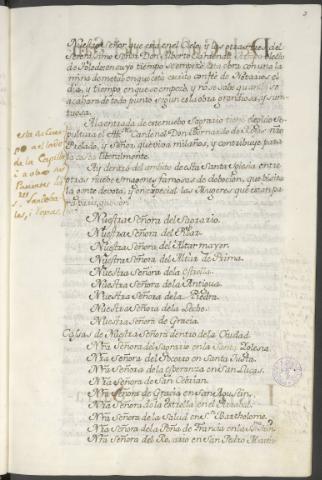 3
Nuestro Señor que está en el Cielo y
Serenissimo Señor Don Alberto Cardenal
de Toledo, en cuyo tiempo se empezó esta obra con una la
mina de metal en que está escrito con fee de Notarios el
dia, y tiempo en que se empezó, y no se sabe quando se
acabara de todo punto segun es la obra grandiosa, y sun
tuosa.
A la entrada de este nuebo Sagrario tiene elegido se
pultura el Cardenal Don Bernardo de Rojas nro
Prelado, y Señor, que Dios mil años, y contribuye para
la costa liberalmente.
Ay dentro del ambito de esta Santa Iglesia entre
otras nuebe Imagenes famosas de deboción, que bisita
la gente devota, y en especial las Mugeres que
son
Nuestra Señora del Sagrario.
Nuestra Señora del Pilar.
Nuestra Señora del Altar mayor.
Nuestra Señora del Altar de Prima.
Nuestra Señora de la Estrella.
Nuestra Señora de la Antigua.
Nuestra Señora de la Piedra.
Nuestra Señora de la Leche.
Nuestra Señora de Gracia.
Casas de Nuestra Señora dentro de la Ciudad
Nra Señora del Sagrario en la Santa Iglesia.
Nra Señora del Socorro en Santa Justa.
Nra Señora de la Esperanza en San Lucas.
Nra Señora de San Cebrian.
Nra Señora de Gracia en San Agustin.
Nra Señora de la Estrella en el Arrabal.
Nra Señora de la Salud en Sn Bartholome.
Nra Señora de la Peña de Francia en la
Nra Señora del Rosario en San Pedro Martir